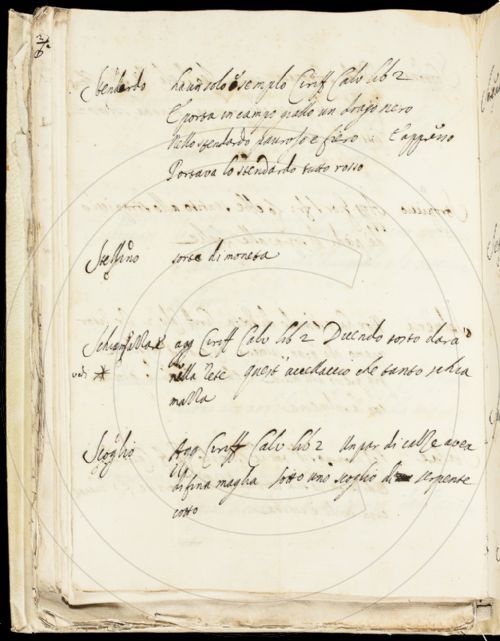 Stendardo ha un solo esemplo Ciriff Calv lib 2
E porta in campo giallo un drago nero
Nello stendardo pauroso e fiero E appresso
Portava lo stendardo tutto rosso
Stellino sorte di moneta
Schiamazzare agg Ciriff Calv lib 2 Dicendo tosto darà
vedi nella rete quest' uccellaccio che tanto schia
mazza
Scoglio Agg Ciriff Calv lib 2 Un par di calze avea
di fina maglia sotto uno scoglio di serpente
cotto